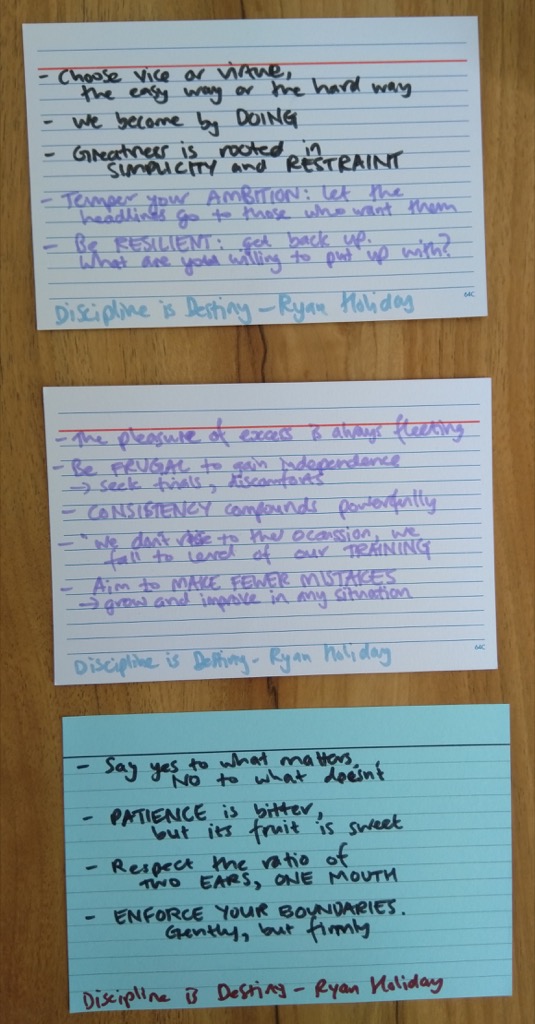 - Choose vice or virtue,
the easy way or the hard way
- We become by DOING
- Greatness is rooted in
SIMPLICITY and RESTRAINT
- Temper your AMBITION: let the
headlines go to those who want them
- Be RESILIENT: get back up.
What are you willing to put up with?
64C
Discipline is Destiny - Ryan Holiday
- The pleasure of excess is always fleeting
- Be FRUGAL to gain independence
→ seek trials, discomforts
- CONSISTENCY compounds powerfully
- "we don't rise to the ocassion, we
fall to level of our TRAINING
- Aim to MAKE FEWER MISTAKES
→ grow and improve in any situation
64C
Discipline is Destiny - Ryan Holiday
- Say yes to what matters,
NO to what doesn't
- PATIENCE is bitter,
but its fruit is sweet
- Respect the ratio of
TWO EARS, ONE MOUTH
- ENFORCE YOUR BOUNDARIES.
Gently, but firmly
Discipline is Destiny - Ryan Holiday